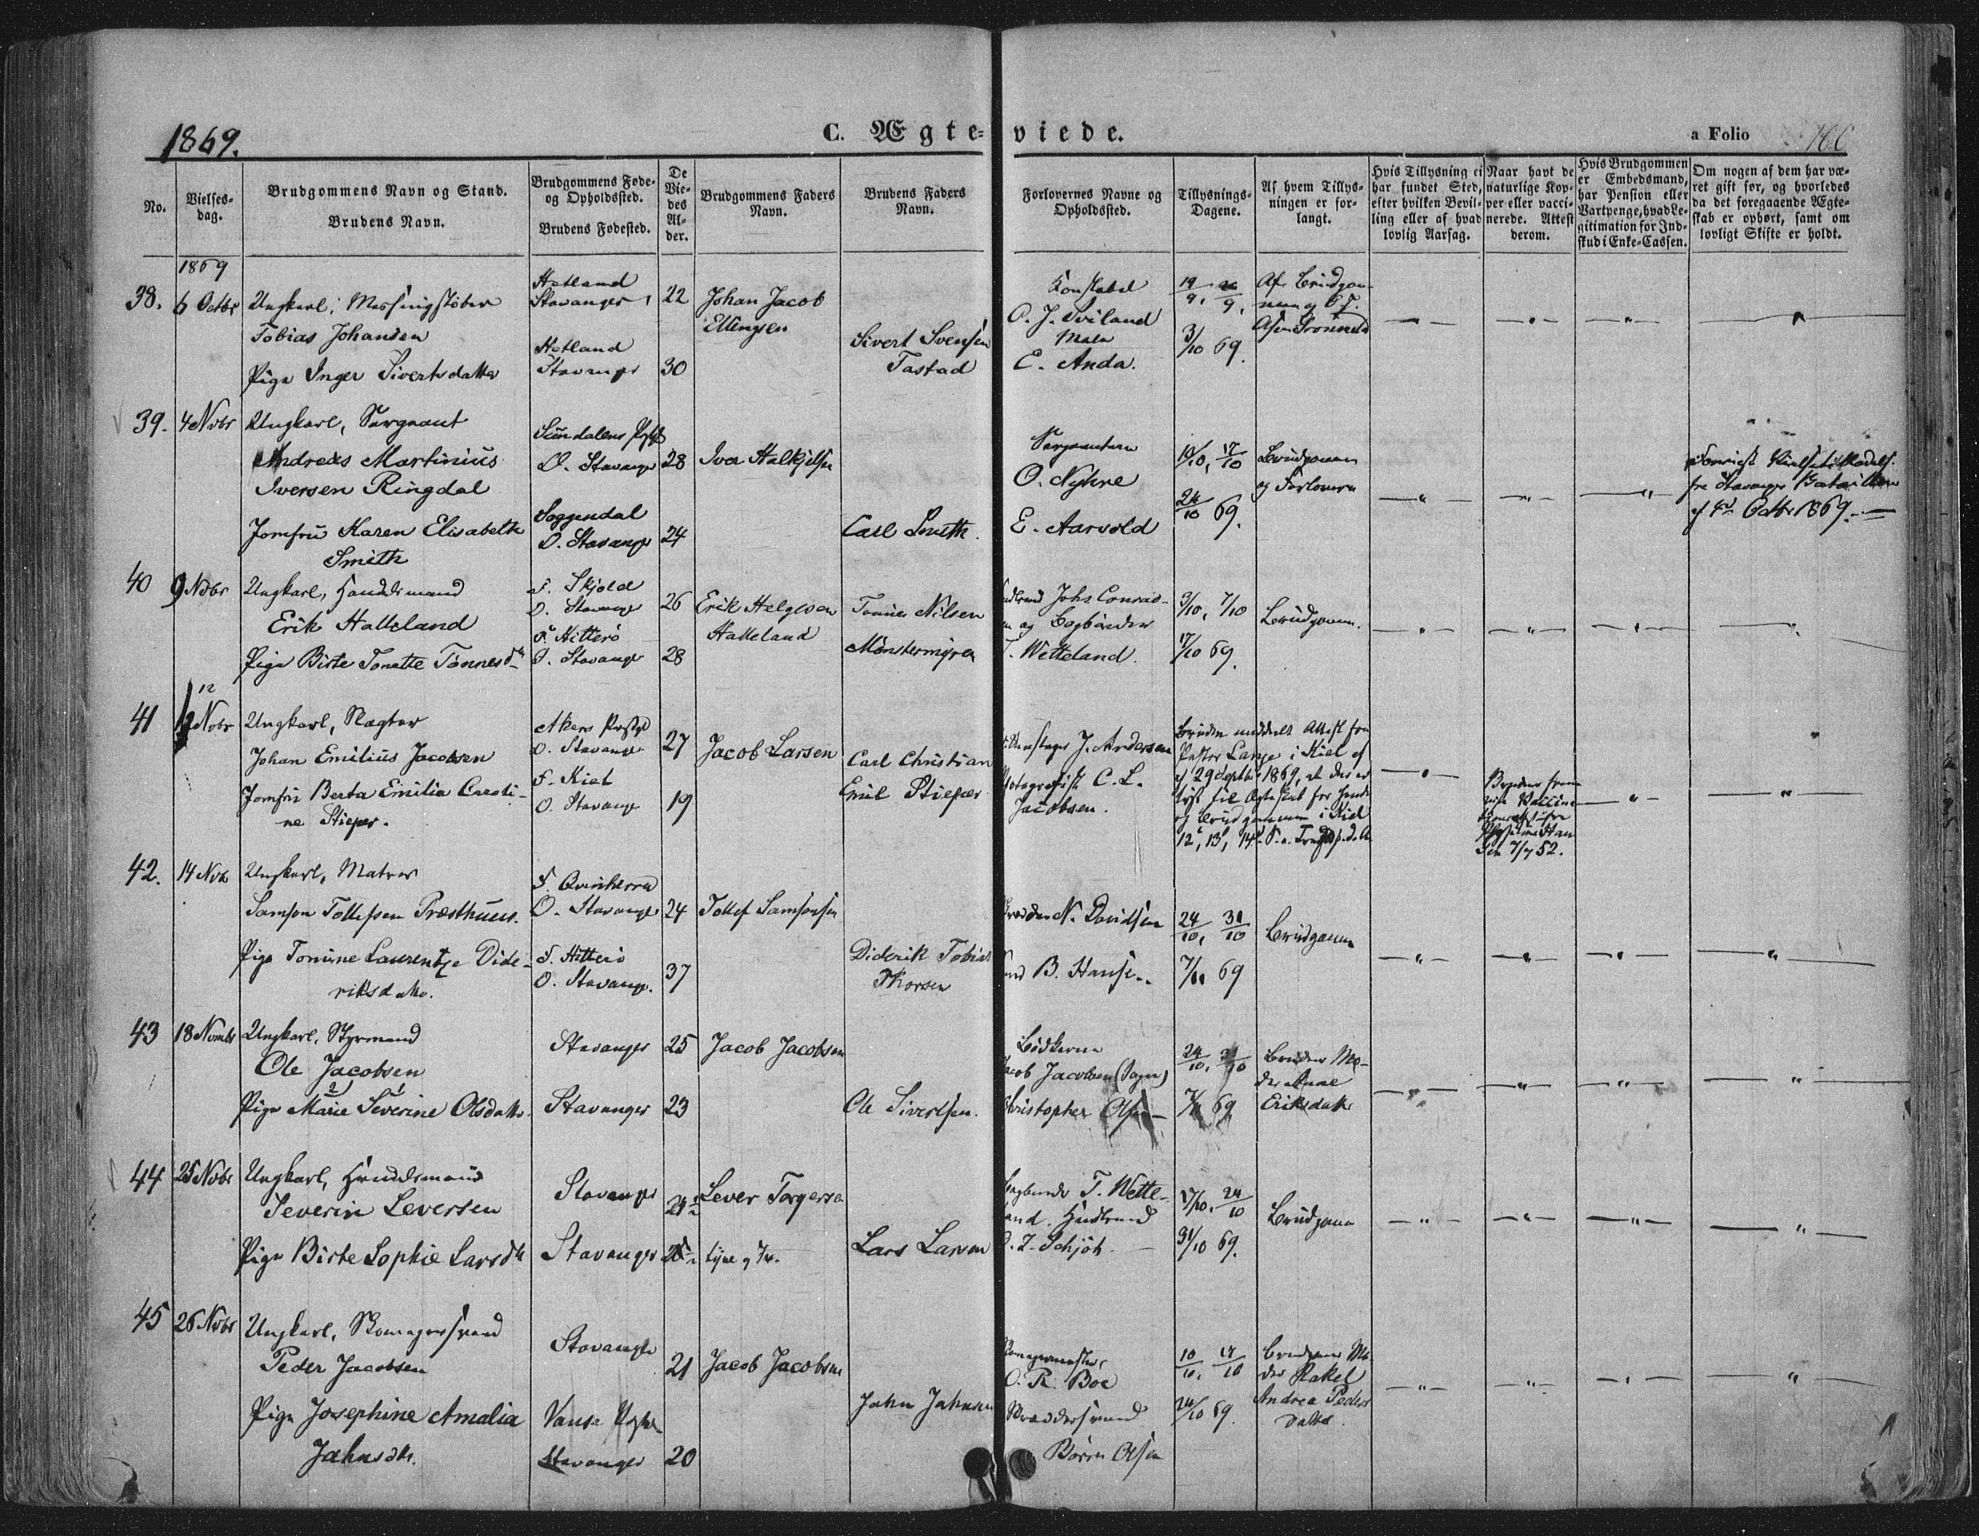 1869.
C. Ægte-viede.
a Folio
No.
Vielses-
dag.
Brudgommens Navn og Stand.
Brudens Navn.
Brudgommens Føde-
og Opholdssted.
Brudens Fødested.
De
Vie-
des
Al-
der.
Brudgommens Faders
Navn.
Brudens Faders
Navn.
Forlovernes Navne og
Opholdssted.
Tillysnings-
Dagene.
Af hvem Tillys-
ningen er for-
langt.
Hvis Tillysning ei
har fundet Sted,
efter hvilken Bevil-
ling eller af hvad
lovlig Aarsag.
Naar havt de
naturlige Kop-
per eller vacci-
nerede. Attest
derom.
Hvis Brudgommen
er Embedsmand,
har Pension eller
Vartpenge, hvad Le-
gitimation for Ind-
skud i Enke-Cassen.
Om nogen af dem har væ-
ret gift før, og hvorledes
da det foregaaende Ægte-
skab er ophørt, samt om
lovligt Skifte er holdt.
1869
38. 6 Octbr Ungkarl, Messingstøber
Tobias Johansen
Pige Inger Sivertsdatter
Hetland
Stavanger
Hetland
Stavanger
22
30
Johan Jacob
Ellingsen
Sivert Svensen
Tastad
Konstabel
O. J. Sviland
Maler
E. Anda.
3/10 69.
Af Brudgom-
39. 4 Novbr Ungkarl, Sergeant
Andreas Martinius
Iversen Ringdal
Jomfru Karen Elisabeth
Smith
Sundalens Pgld
O. Stavanger
Soggendal
O. Stavanger
28
24
Iver
Carl Smith.
Sergeanterne
O. Nyhre
E. Aarvold
19/10, 17/10
24/10 69.
Brudgommen
og Forloverne
fra Stavanger Bataillon
af 4de Octbr 1869.
40 9 Novbr Ungkarl, Handelsmand
Erik Halleland
Pige Birte Tonette Tønnesd.
F. Skjold
O. Stavanger
F. Hitterø
O. Stavanger
26
28
Erik Helgesen
Halleland
Tønnes Nilsen
Mønstermyren
Johs Conrad-
og Bogbinder
T. Wetteland.
3/10, 7/10
17/10 69.
Brudgommen.
41 12 Novbr Ungkarl, Slagter
Johan Emilius Jacobsen
Jomfru Berta Emilia Cresti-
ne Stieper.
Akers Prstgd
O. Stavanger
F. Kiel
O. Stavanger
27
19
Jacob Larsen
Carl Christian
Emil Stieper
J. Andersen
Photografist C. L.
Jacobsen.
Bruden meddelt Attest fra
Pastor Lange i Kiel af
29 Septbr 1869, at der er
lyst til Ægteskab for hende
og Brudgommen i Kiel
den 7/7 52.
42. 14 Novbr Ungkarl, Matros
Samson Tollefsen Præsthuus.
Pige Tomine Laurentze Dide-
riksdatter.
F. Qvinherred
O. Stavanger
F. Hitterø
O. Stavanger.
24
37
Tollef Samsonsen
Diderik Tobias
Thorsen
N. Davidsen
B. Hansen
24/10, 31/10
7/11 69
Brudgommen
43 18 Novmbr Ungkarl, Styrmand
Ole Jacobsen
Pige Marie Severine Olsdatter
Stavanger
Stavanger
25
23
Jacob Jacobsen
Ole Sivertsen.
Bødkerne
Jacob Jacobsen
Christopher Olsen
24/10, 31/10
7/11 69
Brudens Mo-
der Anne
Eriksdatter
44 25 Novbr Ungkarl, Handelsmand
Severin Leversen
Pige Birte Sophie Larsdtr
Stavanger
Stavanger
Lever Torgersen
Lars Larsen
Bogbinder T. Wette-
land.
Schjøth.
17/10, 24/10
31/10 69.
Brudgommen
45 26 Novbr Ungkarl, Skomagersvend
Peder Jacobsen
Pige Josephine Amalia
Jahnsdtr.
Stavanger
Vanse Pgld
Stavanger
21
20
Jacob Jacobsen
Jahn Jahnsen
Skomagermester
O. R. Boe
Skræddersvend
Børre Olsen
10/10, 17/10
24/10 69.
Brudgommens Mo-
der Rakel
Andrea Peders
datter.